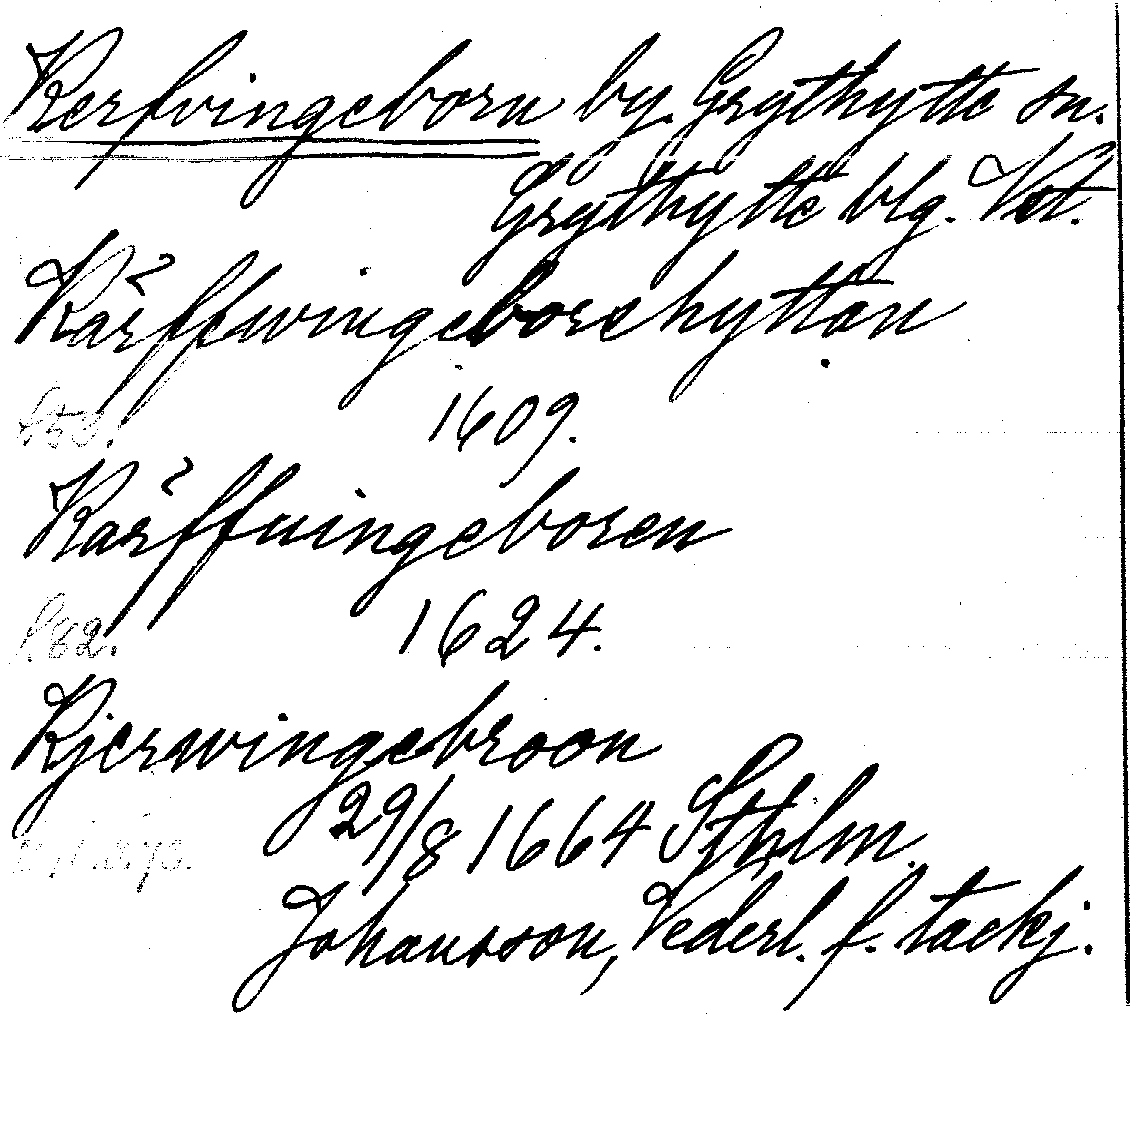 Kerfvingeborn by. Grythytte sn.
Grythytte blg. Vst.
Kärffwingeborehyttan
1609.
Kärffuingeboren
82. 1624.
Kjerwingebroon
29/8 1664 Sthlm.
Johansson, Vederl. f. tackj.